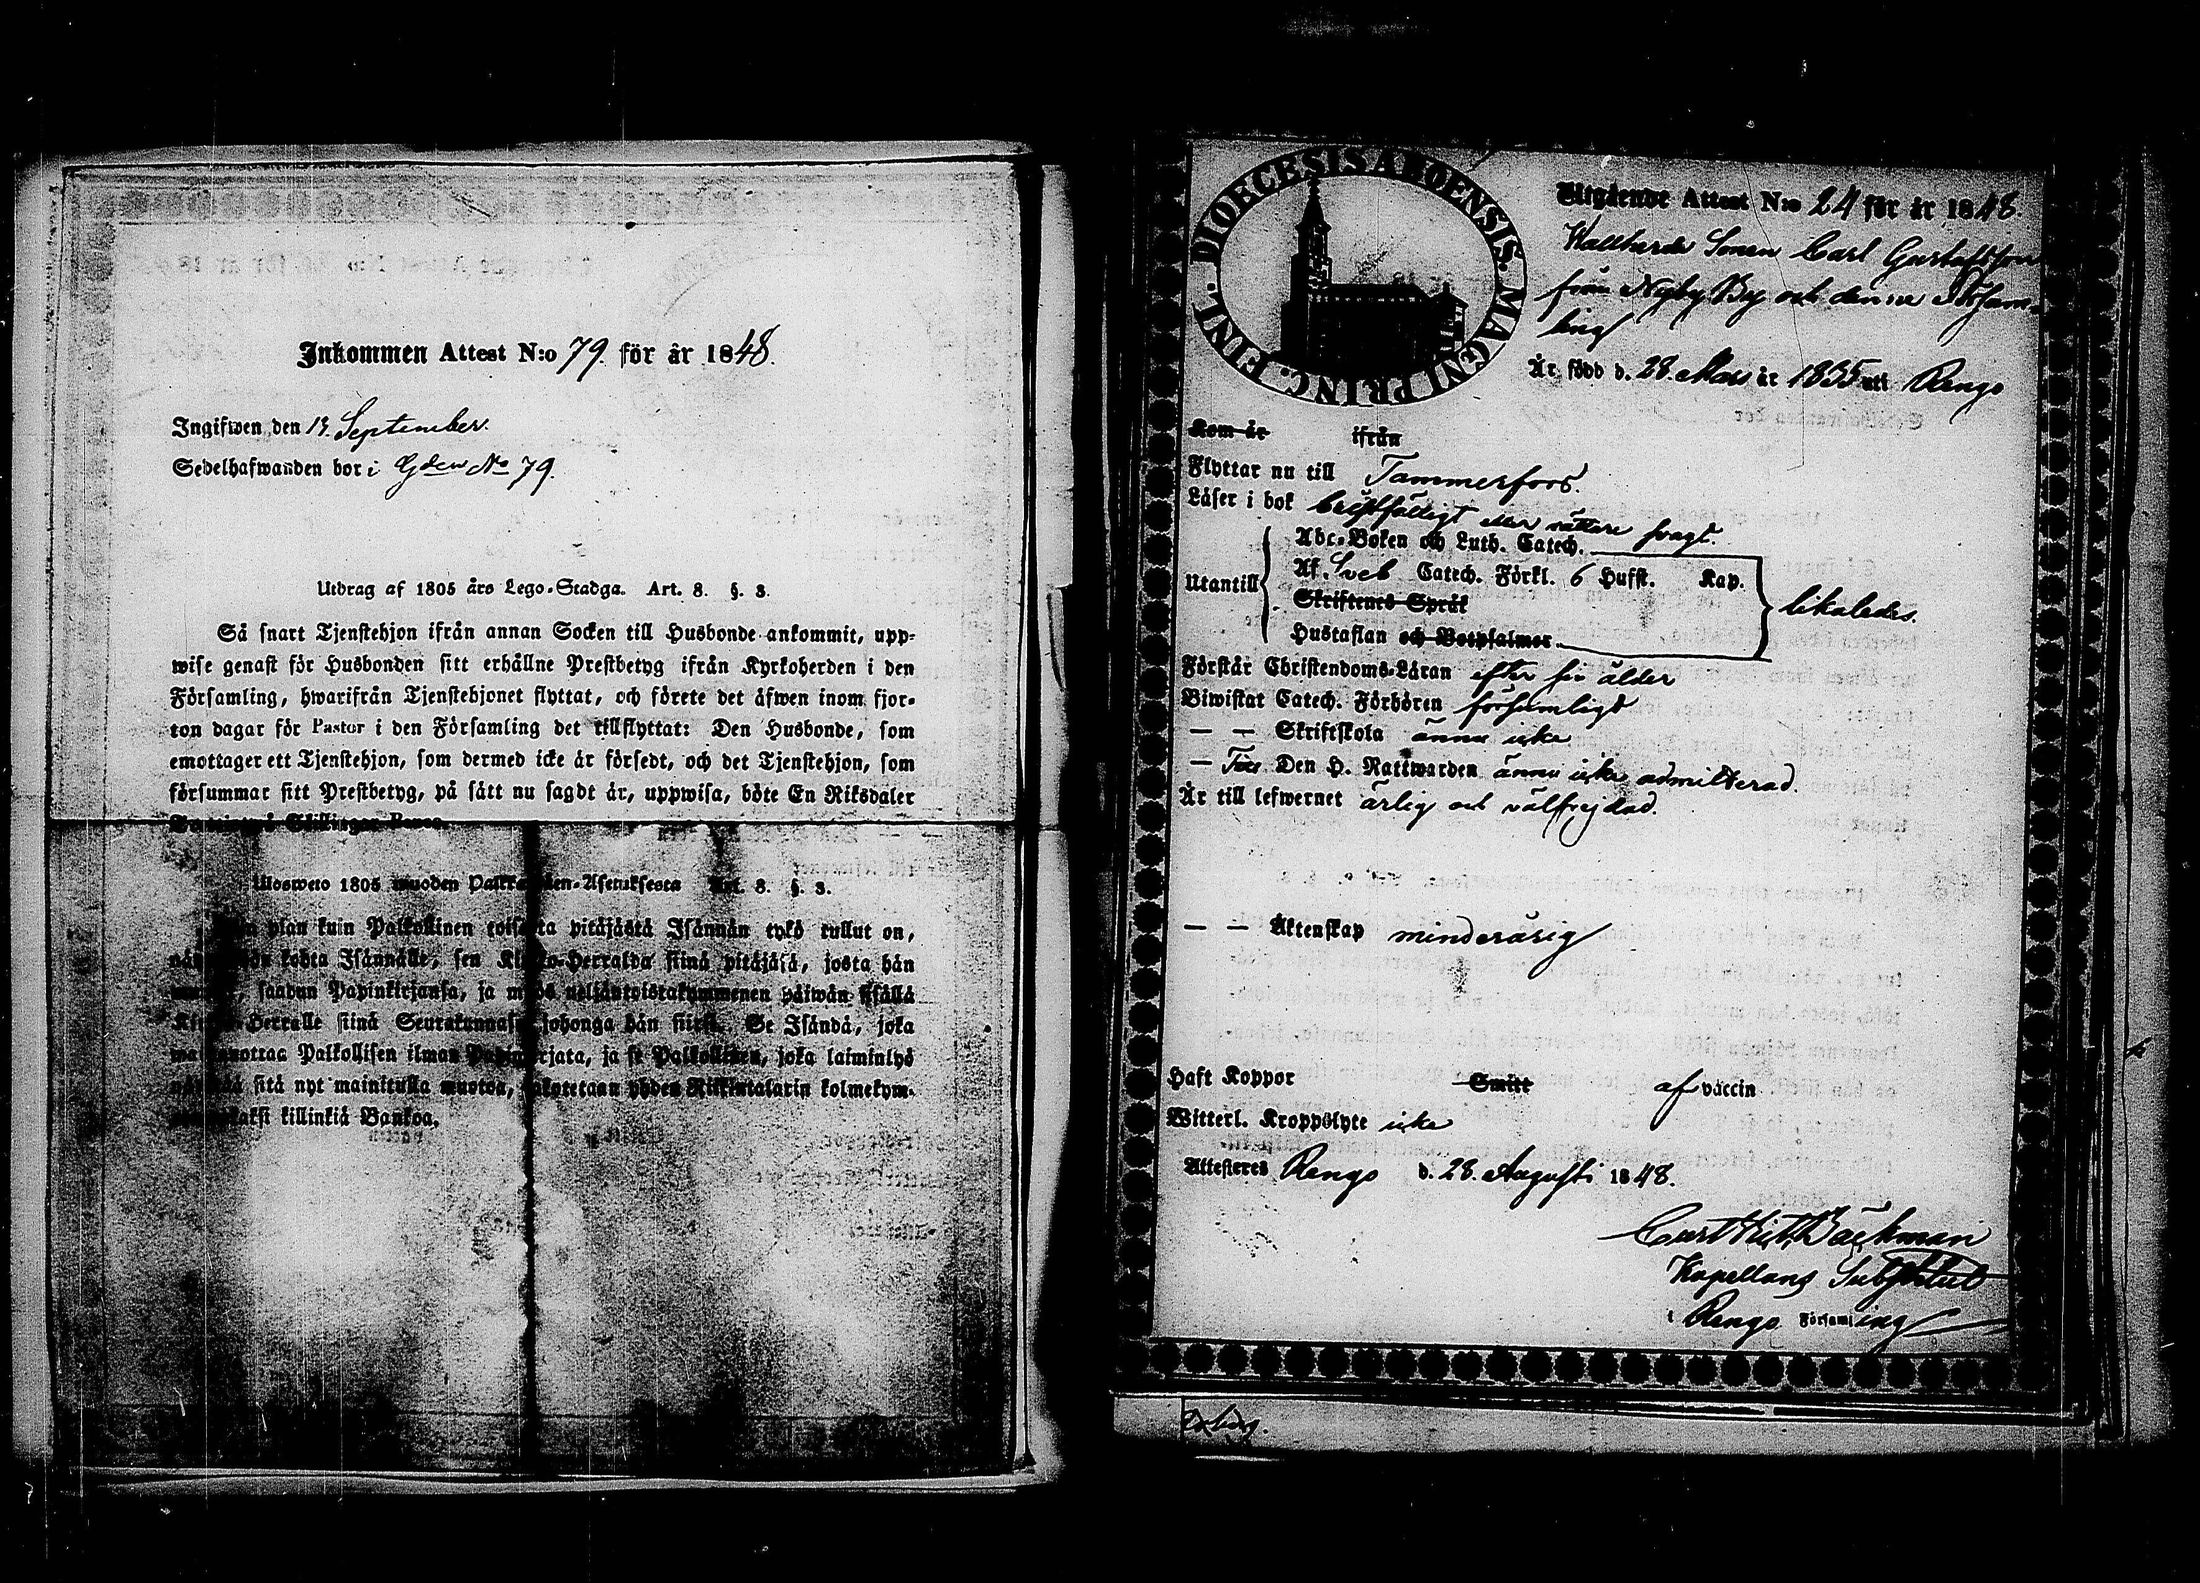 Inkommen Attest N:o 79. för år 1848.
Ingifwen den 13. September.
Sedelhafwanden bor i Gden No 79.
Utdrag af 1805 års Lego-Stadga. Art. 8. §. 3.
Så snart Tjenstehjon ifrån annan Socken till Husbonde ankommit, upp-
wise genast för Husbonden sitt erhållne Prestbetyg ifrån Kyrkoherden i den
Församling, hwarifrån Tjenstehjonet flyttat, och förete det äfwen inom fjor-
ton dagar för Pastor i den Församling det tillflyttat: Den Husbonde, som
emottager ett Tjenstehjon, som dermed icke är försedt, och det Tjenstehjon, som
försummar sitt Prestbetyg, på sätt nu sagdt är, uppwisa, böte En Riksdaler
Ulosweto 1805 wuoden Asetuksesta Art. 8. §. 3.
plan kuin Palkollinen toisesta pitäjästä Isännän tykö tullut on,
kohta Isännälle, sen Kirkko-Herralda siinä pitäjäsä, josta hän
saadun Papinkirjansa, ja myös neljäntoistakymmenen päiwän sisällä
Herralle siinä Seurakunnasa johonga hän siirsi. Se Isändä, joka
Palkollisen ilman Papinkirjata, ja se Palkollinen, joka laiminlyö
sitä nyt mainitulla muotoa, yhden Riikintalarin kolmekym-
killinkiä Bankoa.
DIOECESIS ABOENSIS. MAGNI PRINC. FINL.
Utgående Attest N:o 24 för år 1848.
Sonen Carl Gustafsson
från Nyby By och denna Försam-
ling
Är född d. 28. Mars år 1835 uti Rengo
Kom år ifrån
Flyttar nu till Tammerfors.
Läser i bok
Abc-Boken och Luth. Catech.
Utantill Af. Sveb Catech. Förkl. 6 Hufst. Kap. likaledes.
Skriftenes Språk
Hustaflan och Botpsalmer
Förstår Christendoms-Läran efter sin ålder
Biwistat Catech. Förhören församligt
— — Skriftskola ännu icke
— Till Den H. Nattwarden ännu icke admitterad.
Är till lefwernet ärlig och välfrejdad.
— — Äktenskap minderårig
Haft Koppor Smitt af vaccin
Witterl. Kroppslyte icke
Attesteras Rengo d. 28. Augusti 1848.
Bäckman
Kapellans
i Rengo Församling